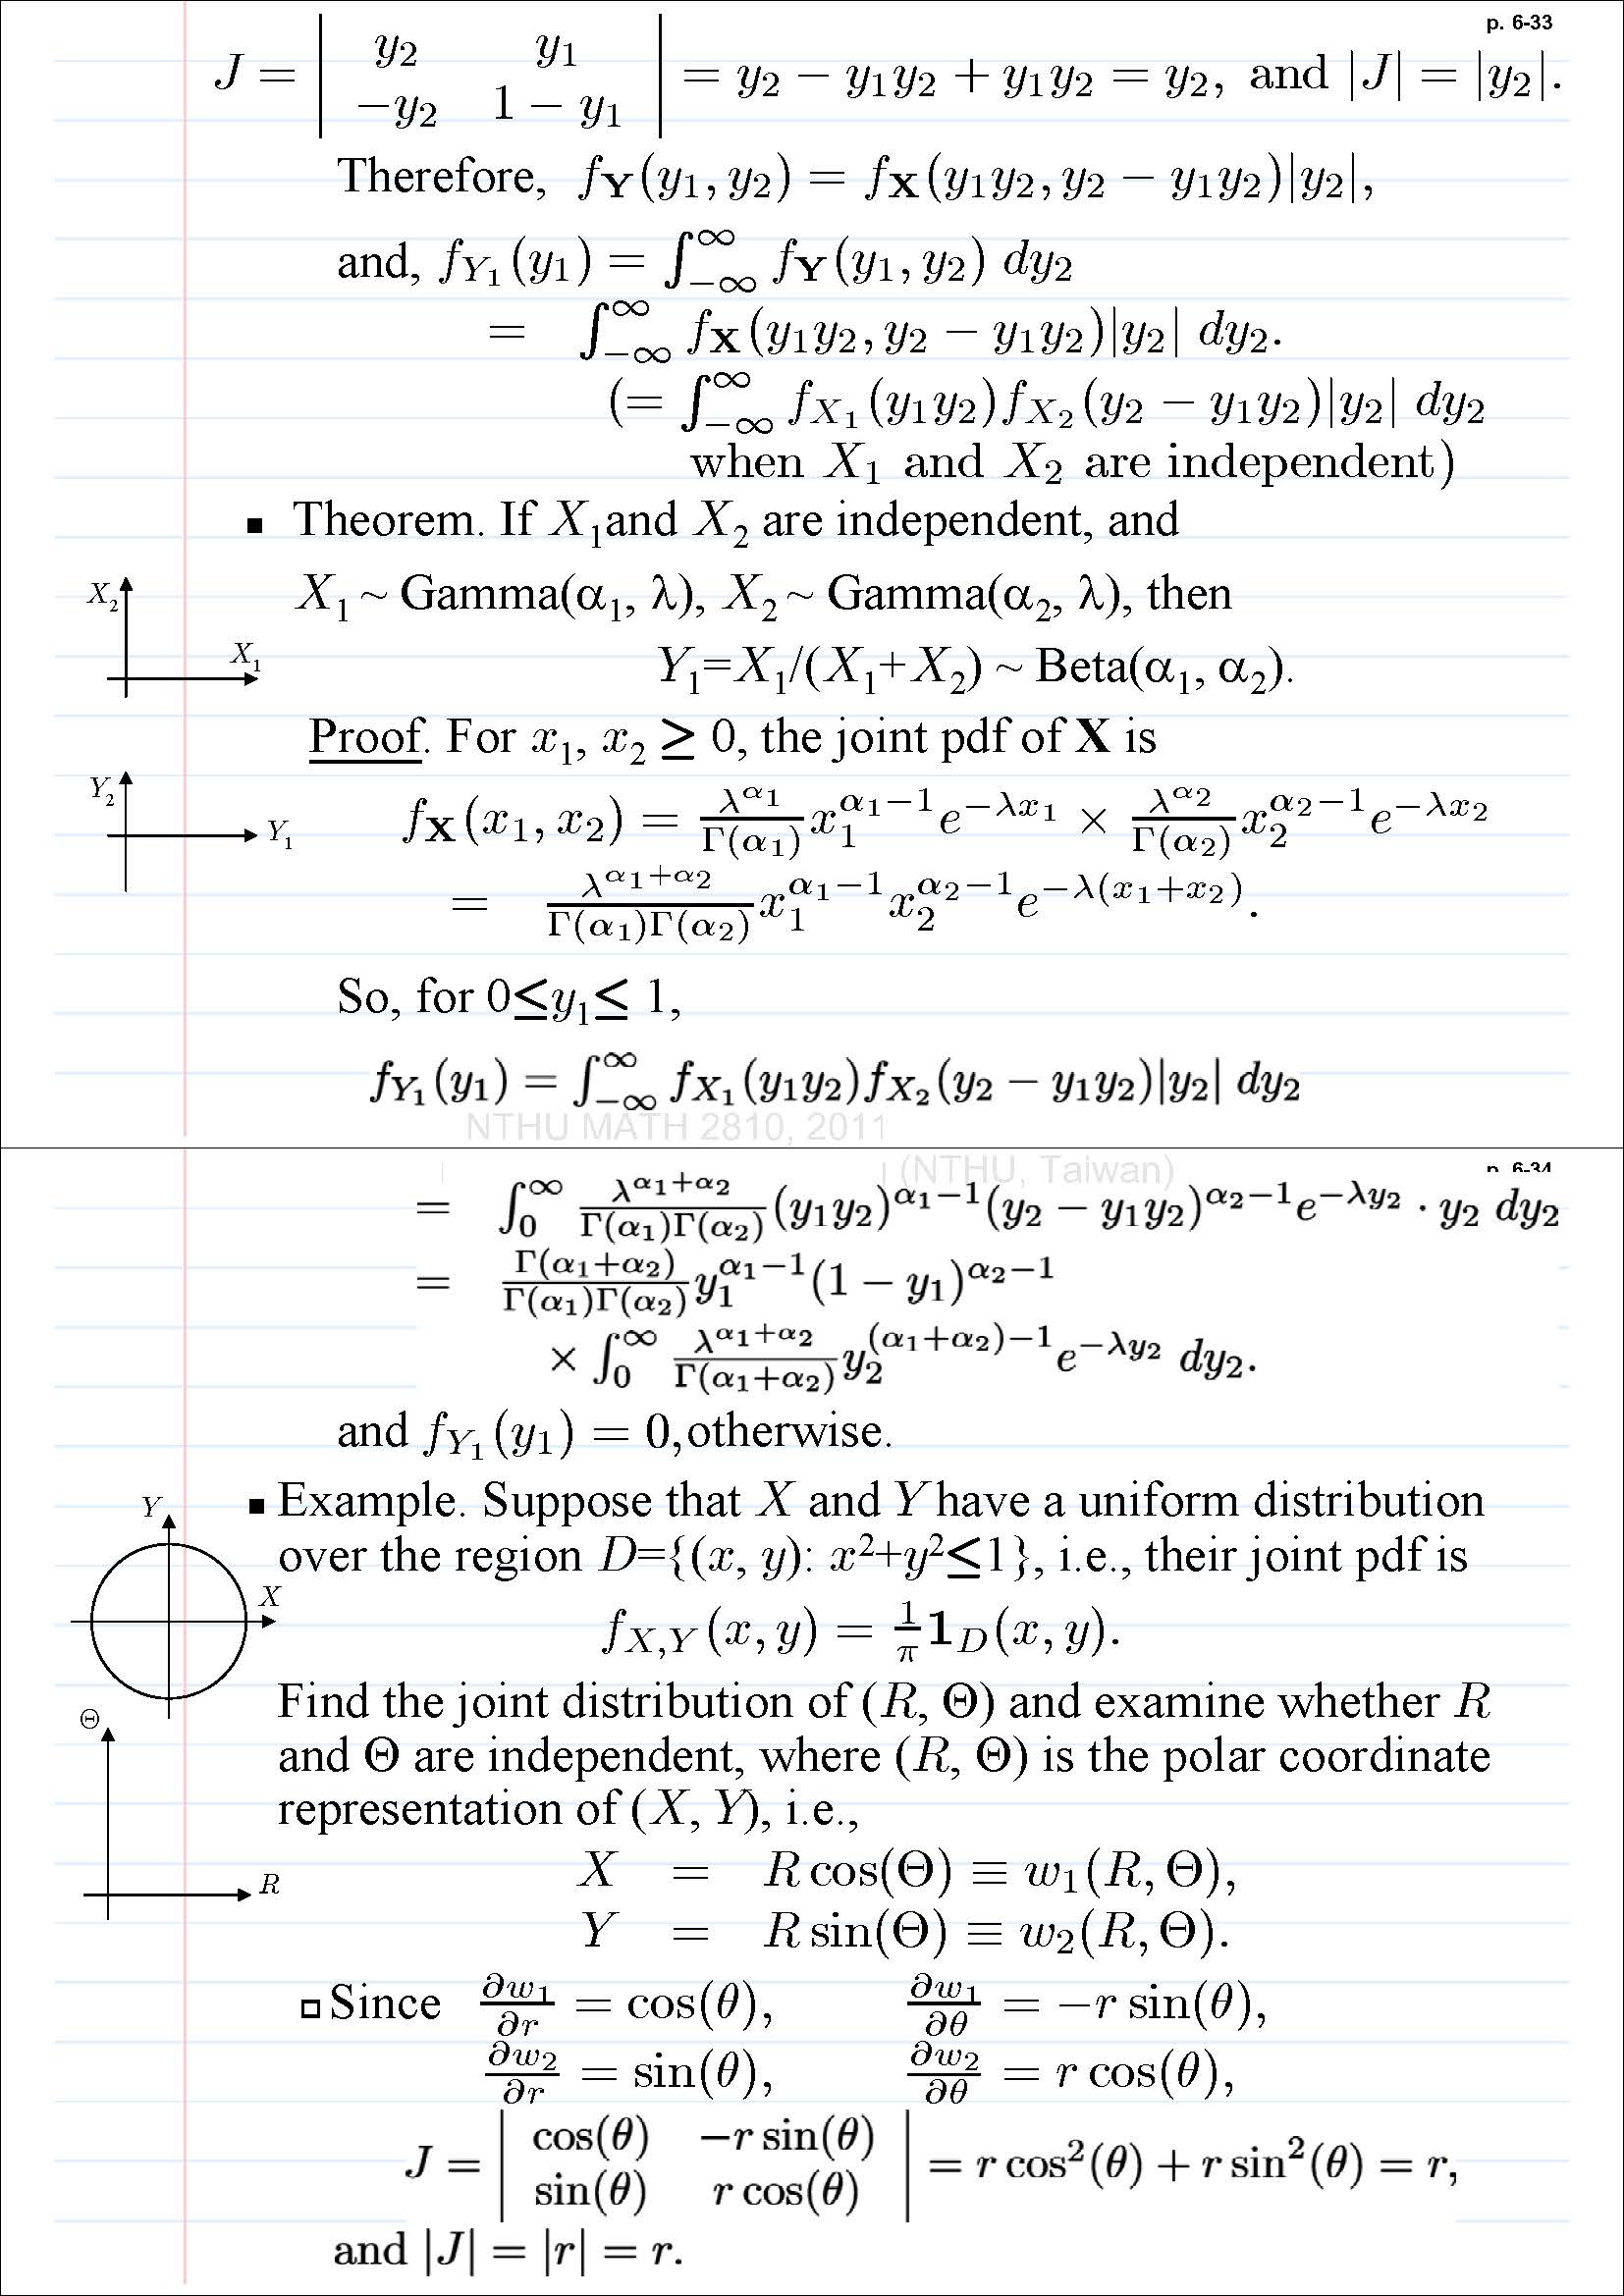 p. 6-33
J = | y₂ y₁ |
| −y₂ 1 − y₁ | = y₂ − y₁y₂ + y₁y₂ = y₂, and |J| = |y₂|.
Therefore, f_𝐘(y₁, y₂) = f_𝐗(y₁y₂, y₂ − y₁y₂)|y₂|,
and, f_{Y₁}(y₁) = ∫_{−∞}^{∞} f_𝐘(y₁, y₂) dy₂
= ∫_{−∞}^{∞} f_𝐗(y₁y₂, y₂ − y₁y₂)|y₂| dy₂.
(= ∫_{−∞}^{∞} f_{X₁}(y₁y₂) f_{X₂}(y₂ − y₁y₂)|y₂| dy₂
when X₁ and X₂ are independent)
▪ Theorem. If X₁and X₂ are independent, and
X₁ ~ Gamma(α₁, λ), X₂ ~ Gamma(α₂, λ), then
Y₁=X₁/(X₁+X₂) ~ Beta(α₁, α₂).
X₂
X₁
Proof. For x₁, x₂ ≥ 0, the joint pdf of 𝐗 is
Y₂
Y₁
f_𝐗(x₁, x₂) = \frac{λ^{α₁}}{Γ(α₁)} x₁^{α₁−1} e^{−λx₁} × \frac{λ^{α₂}}{Γ(α₂)} x₂^{α₂−1} e^{−λx₂}
= \frac{λ^{α₁+α₂}}{Γ(α₁)Γ(α₂)} x₁^{α₁−1} x₂^{α₂−1} e^{−λ(x₁+x₂)}.
So, for 0≤y₁≤ 1,
f_{Y₁}(y₁) = ∫_{−∞}^{∞} f_{X₁}(y₁y₂) f_{X₂}(y₂ − y₁y₂)|y₂| dy₂
NTHU MATH 2810, 2011
(NTHU, Taiwan)
p. 6-34
= ∫_0^∞ \frac{λ^{α₁+α₂}}{Γ(α₁)Γ(α₂)} (y₁y₂)^{α₁−1} (y₂ − y₁y₂)^{α₂−1} e^{−λy₂} · y₂ dy₂
= \frac{Γ(α₁+α₂)}{Γ(α₁)Γ(α₂)} y₁^{α₁−1} (1 − y₁)^{α₂−1}
× ∫_0^∞ \frac{λ^{α₁+α₂}}{Γ(α₁+α₂)} y₂^{(α₁+α₂)−1} e^{−λy₂} dy₂.
and f_{Y₁}(y₁) = 0,otherwise.
▪ Example. Suppose that X and Y have a uniform distribution
over the region D={(x, y): x²+y²≤1}, i.e., their joint pdf is
f_{X,Y}(x, y) = \frac{1}{π} 𝟏_D(x, y).
Y
X
Find the joint distribution of (R, Θ) and examine whether R
and Θ are independent, where (R, Θ) is the polar coordinate
representation of (X, Y), i.e.,
Θ
R
X = R cos(Θ) ≡ w₁(R, Θ),
Y = R sin(Θ) ≡ w₂(R, Θ).
▫ Since \frac{∂w₁}{∂r} = cos(θ), \frac{∂w₁}{∂θ} = −r sin(θ),
\frac{∂w₂}{∂r} = sin(θ), \frac{∂w₂}{∂θ} = r cos(θ),
J = | cos(θ) −r sin(θ) |
| sin(θ) r cos(θ) | = r cos²(θ) + r sin²(θ) = r,
and |J| = |r| = r.